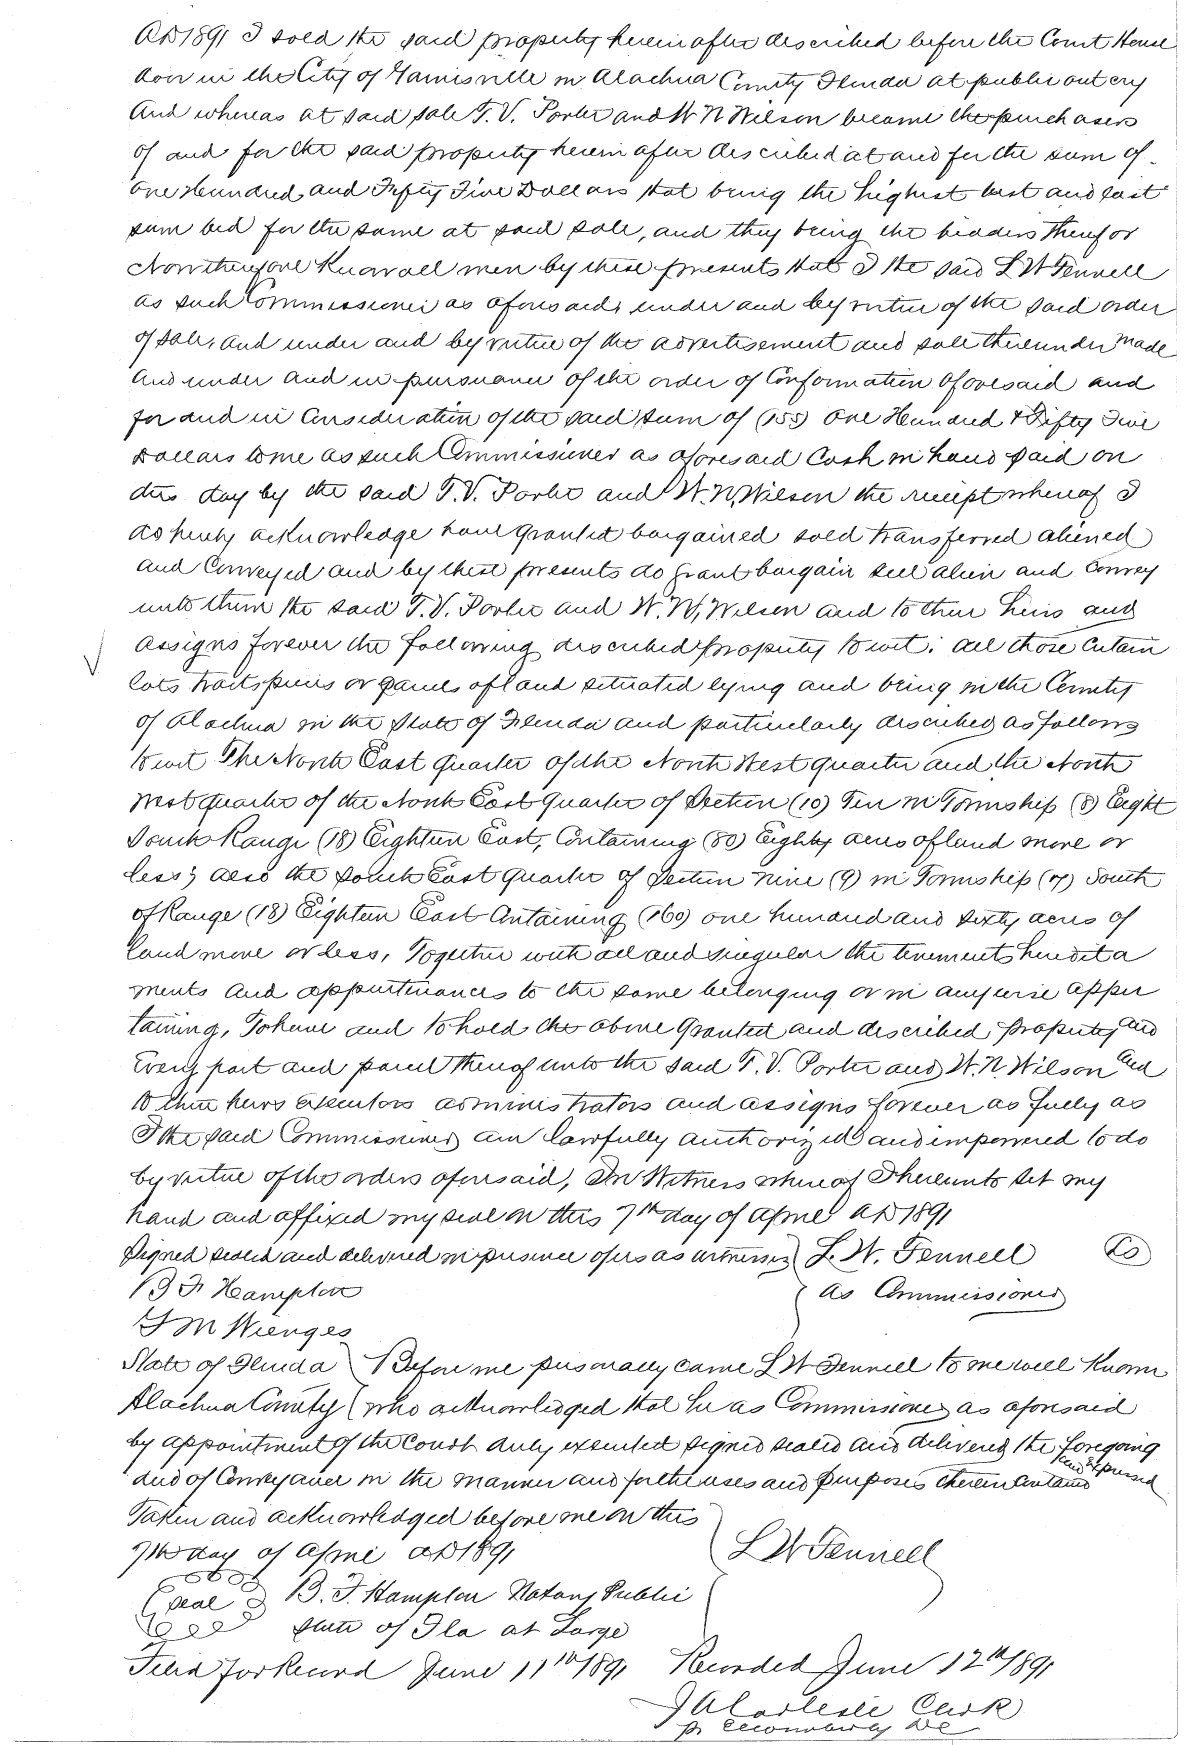 AD 1891 I sold the said property herein after described before the Court House
door in the City of Gainisville in Alachua County Florida at public out cry
And whereas at said sale T. V. Porter and W N Wilson became the purchasers
of and for the said property herein after described at and for the sum of
One Hundred and Fifty Five Dollars that being the highest best and last
sum bid for the same at said sale, and they being the bidders therefor
Now therefore Know all men by these presents that I the said L W Fennell
as such Commissioner as aforesaid, under and by virtue of the said order
of sale, and under and by virtue of the advertisement and sale thereunder made
and under and in pursuance of the order of Conformation Aforesaid and
for and in Consideration of the said sum of (155) One Hundred & Fifty Five
Dollars to me as such Commissioner as aforesaid Cash in hand paid on
this day by the said T. V. Porter and W. N. Wilson the receipt whereof I
do hereby acknowledge have granted bargained sold transferred aliened
and Conveyed and by these presents do grant bargain sell alien and Convey
unto them the said T. V. Porter and W. N, Wilson and to their heirs and
assigns forever the following described property to wit: all those certain
lots tracts pieces or parcels of land situated lying and being in the County
of Alachua in the State of Florida and particularly described as follows
to wit The North East quarter of the North West quarter and the North
West quarter of the North East quarter of Section (10) Ten in Township (8) Eight
South Range (18) Eighteen East, Containing (80) Eighty acres of land more or
less; also the South East quarter of Section nine (9) in Township (7) South
of Range (18) Eighteen East Containing (160) one hundred and sixty acres of
land more or less, Together with all and singular the tenements heredita
ments and appurtenances to the same belonging or in anywise apper
taining, To have and to hold the above granted and described property and
Every part and parcel thereof unto the said T. V. Porter and W. N. Wilson and
to their heirs executors administrators and assigns forever as fully as
I the said Commissioner am lawfully authorized and empowered to do
by virtue of the orders aforesaid, In Witness whereof I hereunto set my
hand and affixed my seal on this 7th day of April AD 1891
Signed sealed and delivered in presence of us as witnesses } L. W. Fennell LS
B F Hampton as Commissioner
J M Wienges
State of Florida } Before me personally came L W Fennell to me well known
Alachua County } who acknowledged that he as Commissioner as aforesaid
by appointment of the Court duly executed signed sealed and delivered the foregoing
deed of Conveyance in the manner and for the uses and purposes therein contained and expressed
Taken and acknowledged before me on this
7th day of April AD 1891 L W Fennell
seal B. F. Hampton Notary Public
State of Fla at Large
Filed for Record June 11th 1891 Recorded June 12th 1891
J A Carlisle Clerk
pr DC